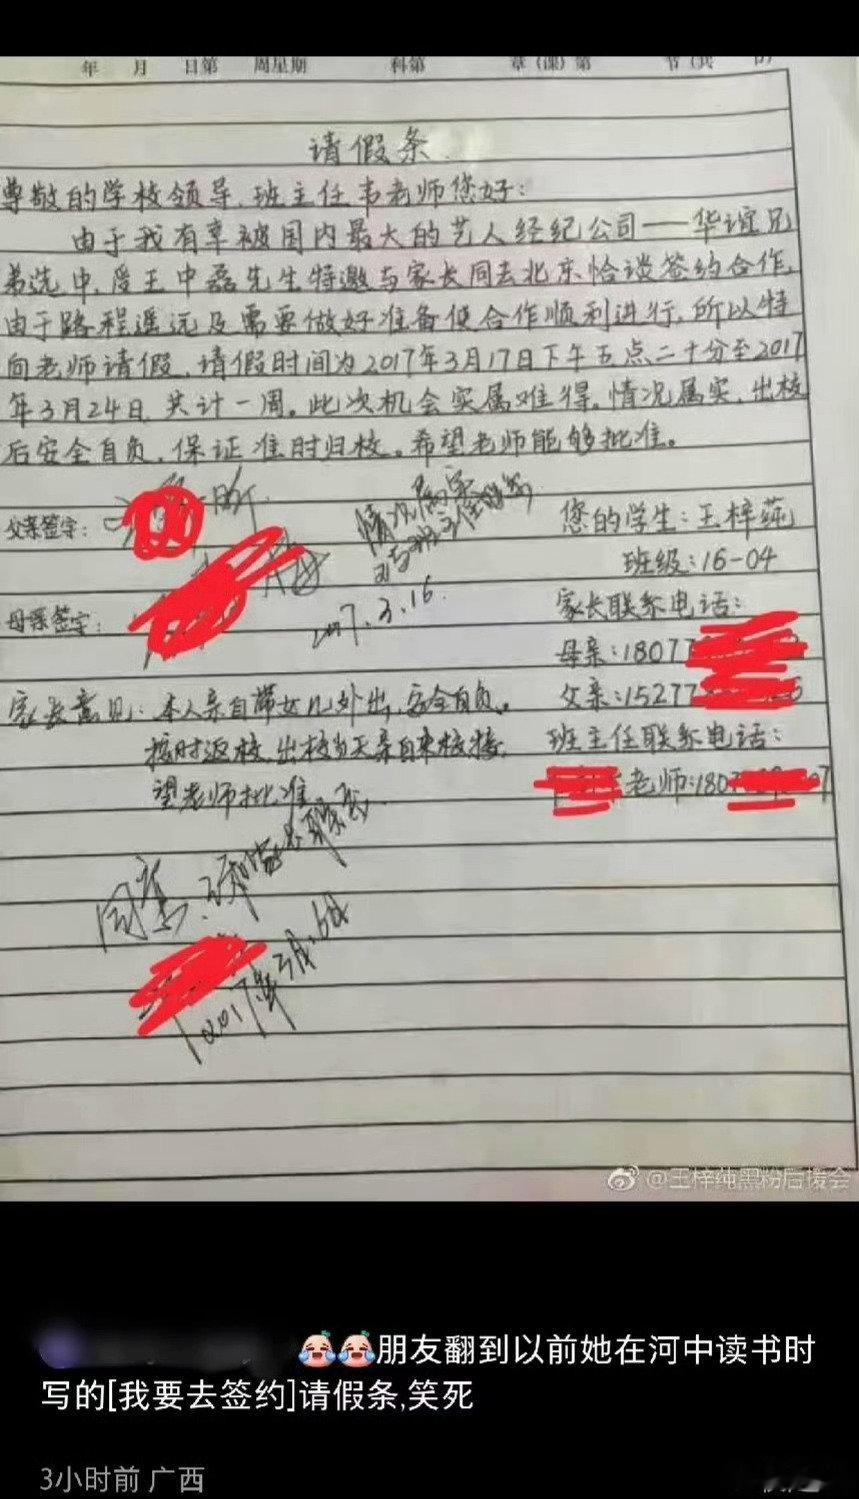 年 月 日第 周星期 科第 章(课)第 节(共
请假条
尊敬的学校领导、班主任韦老师您好:
由于我有幸被国内最大的艺人经纪公司——华谊兄
弟选中,受王中磊先生特邀与家长同去北京恰谈签约合作,
由于路程遥远及需要做好准备使合作顺利进行,所以特
向老师请假,请假时间为2017年3月17日下午五点二十分至2017
年3月24日,共计一周。此次机会实属难得。情况属实,出校
后安全自负,保证准时归校。希望老师能够批准。
父亲签字:
情况属实
2017.3.16
您的学生:王梓莼
班级:16-04
母亲签字:
家长联系电话:
母亲:1807
父亲:15277
家长意见:本人亲自带女儿外出,安全自负。
按时返校,出校当天亲自来校接,
望老师批准。
班主任联系电话:
老师:180
同意
2017年3月16日
@王梓纯黑粉后援会
朋友翻到以前她在河中读书时
写的[我要去签约]请假条,笑死
3小时前 广西